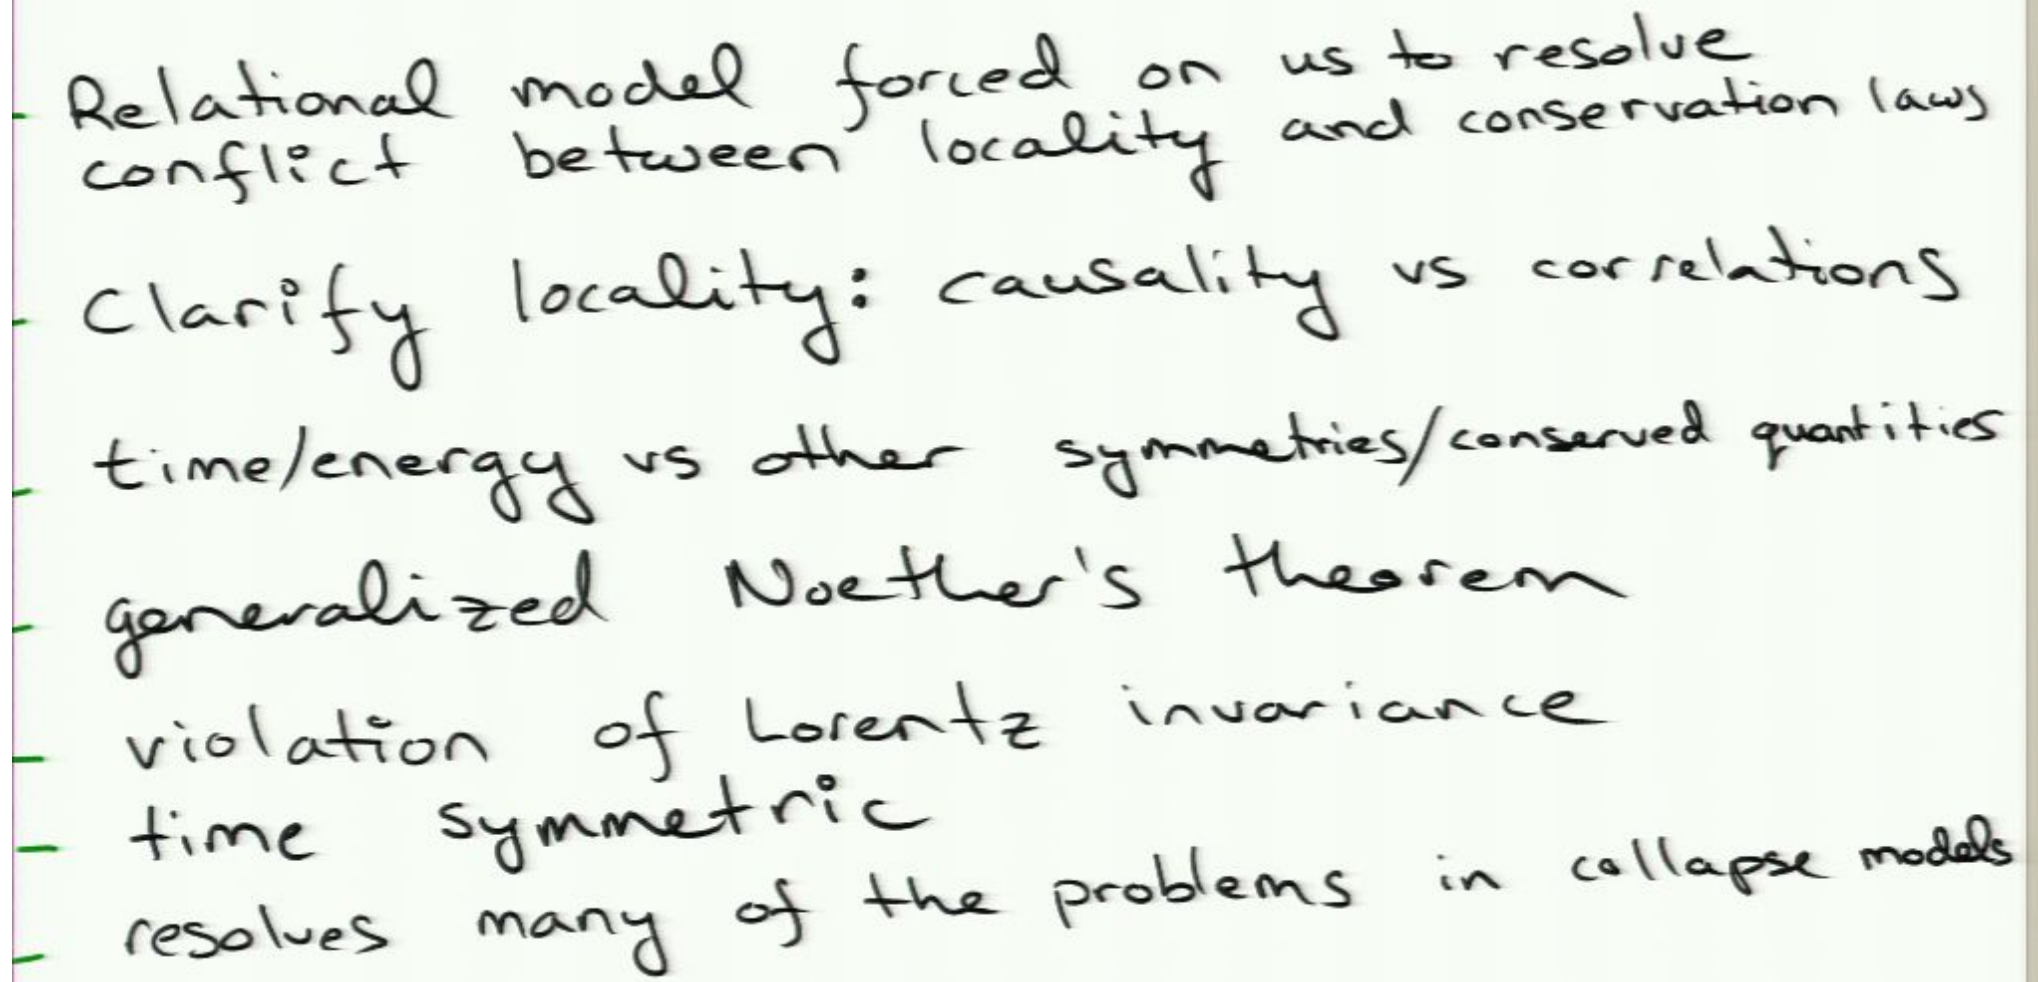 - Relational model forced on us to resolve
conflict between locality and conservation laws
- Clarify locality: causality vs correlations
- time/energy vs other symmetries/conserved quantities
- generalized Noether's theorem
- violation of Lorentz invariance
- time symmetric
- resolves many of the problems in collapse models